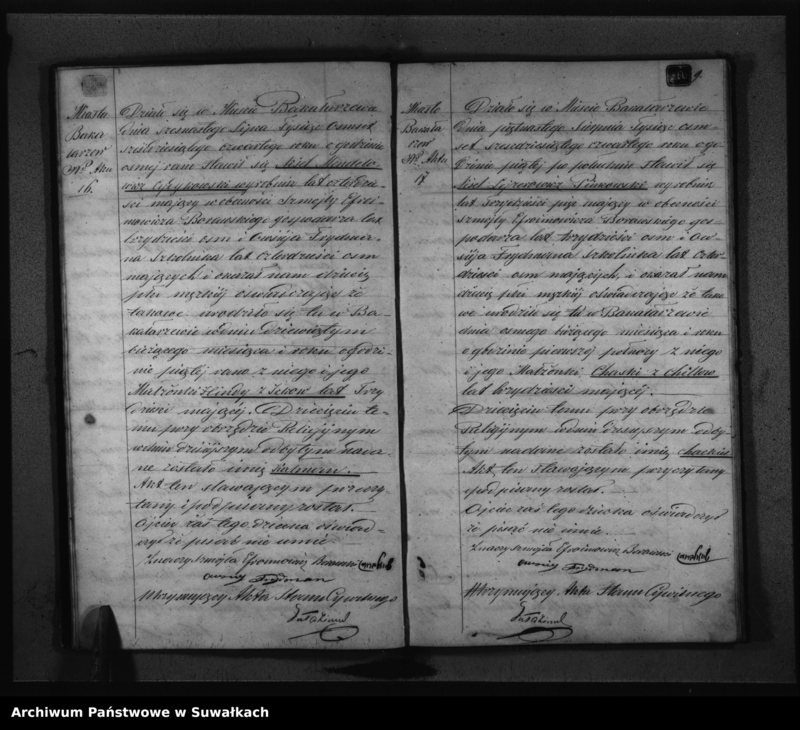 Miasto
Baka
larzew
No Aktu
16.
Działo się w Mieście Bakałarzewie
dnia szesnastego Lipca Tysiąc osmset
sześćdziesiątego czwartego roku o godzinie
osmej rano stawił się Mendelo-
wicz wyrobnik lat czterdzie-
ści mający w obecności Szmojły Efroi-
mowicza Borawskiego gospodarza lat
trzydzieści osm i Owsieja Frydma-
na Szkolnika lat czterdzieści osm
mających i okazał nam dziecię
płci męzkiej oświadczając że
takowe urodziło się tu w Ba-
kałarzewie w dniu dziewiątym
bieżącego miesiąca i roku o godzi-
nie piątej rano z niego i jego
Małżonki Hindy z lat trzy
dzieści mającej. Dziecięciu te-
mu przy obrzędzie religijnym
w dniu dzisiejszym odbytym nada-
ne zostało imię Kalman.
Akt ten stawającym przeczy-
tany i podpisany został.
Ojciec zaś tego dziecka oświad-
czył że pisać nie umie
Znaczy Szmojła Efroimowicz Borawski
Frydman
Utrzymujący Akta Stanu Cywilnego
9.
Miasto
Bakała
rzew
No Aktu
17
Działo się w Mieście Bakałarzewie
dnia piętnastego Sierpnia Tysiąc osm-
set sześćdziesiątego czwartego roku o go-
dzinie piątej po południu stawił się
Lejzerowicz wyrobnik
lat trzydzieści pięć mający w obecności
Szmojły Efroimowicza Borawskiego gos-
podarza lat trzydzieści osm i Ow-
sieja Frydmana Szkolnika lat czter-
dzieści osm mających, i okazał nam
dziecię płci męzkiej oświadczając że tako-
we urodziło się tu w Bakałarzewie
dnia osmego bieżącego miesiąca i roku
o godzinie pierwszej północy z niego
i jego Małżonki Chaski z
lat trzydzieści mającej.
Dziecięciu temu przy obrzędzie
religijnym w dniu dzisiejszym odby-
tym nadane zostało imię
Akt ten stawającym przeczytany
i podpisany został.
Ojciec zaś tego dziecka oświadczył
że pisać nie umie.
Znaczy Szmojła Efroimowicz Borawski
Frydman
Utrzymujący Akta Stanu Cywilnego
Archiwum Państwowe w Suwałkach